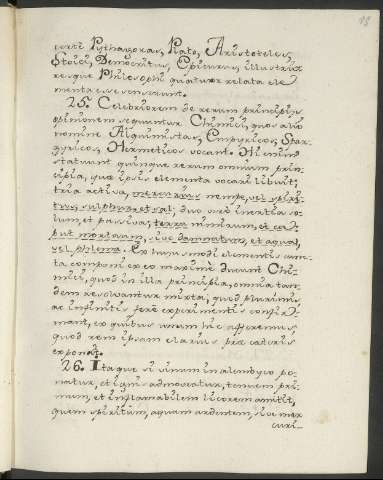 certi Pythagoras, Plato, Aristoteles,
Stoici, Democritus, Epicurus, illustrio
resque Philosophi quatuor relata ele
menta esse senserunt.
25. Celebriorem de rerum principiis
opinionem sequuntur Chimici, quos alio
nomine Alquimistas, Empyricos, Spar-
gyricos, Hermeticos vocant. Hi enim
statuunt quinque rerum omnium prin-
cipia, quae ipsis elementa vocari libuit;
tria activa, mercurius nempe, vel spiri-
tus, sulphur, et sal; duo vero inertia so-
lum, et passiva; terra nimirum, et ca-
put mortuum, sive damnatum, et aqua,
vel phlema. Ex hujusmodi elementis cunc-
ta componi ex eo maximè ducunt Chi-
mici, quod in illa principia, omnia tan-
dem resolvantur mixta, quod plurimis,
ac infinitis ferè experimentis confir-
mant, ex quibus unum hic afferemus
quod rem ipsam clarius prae caeteris
exponat.
26. Itaque si vinum in alembyco po-
natur, et ignis admoveatur, tenuem pri-
mum, et inflamabilem licorem amitit,
quem spiritum, aquam ardentem, sive mer
curi-